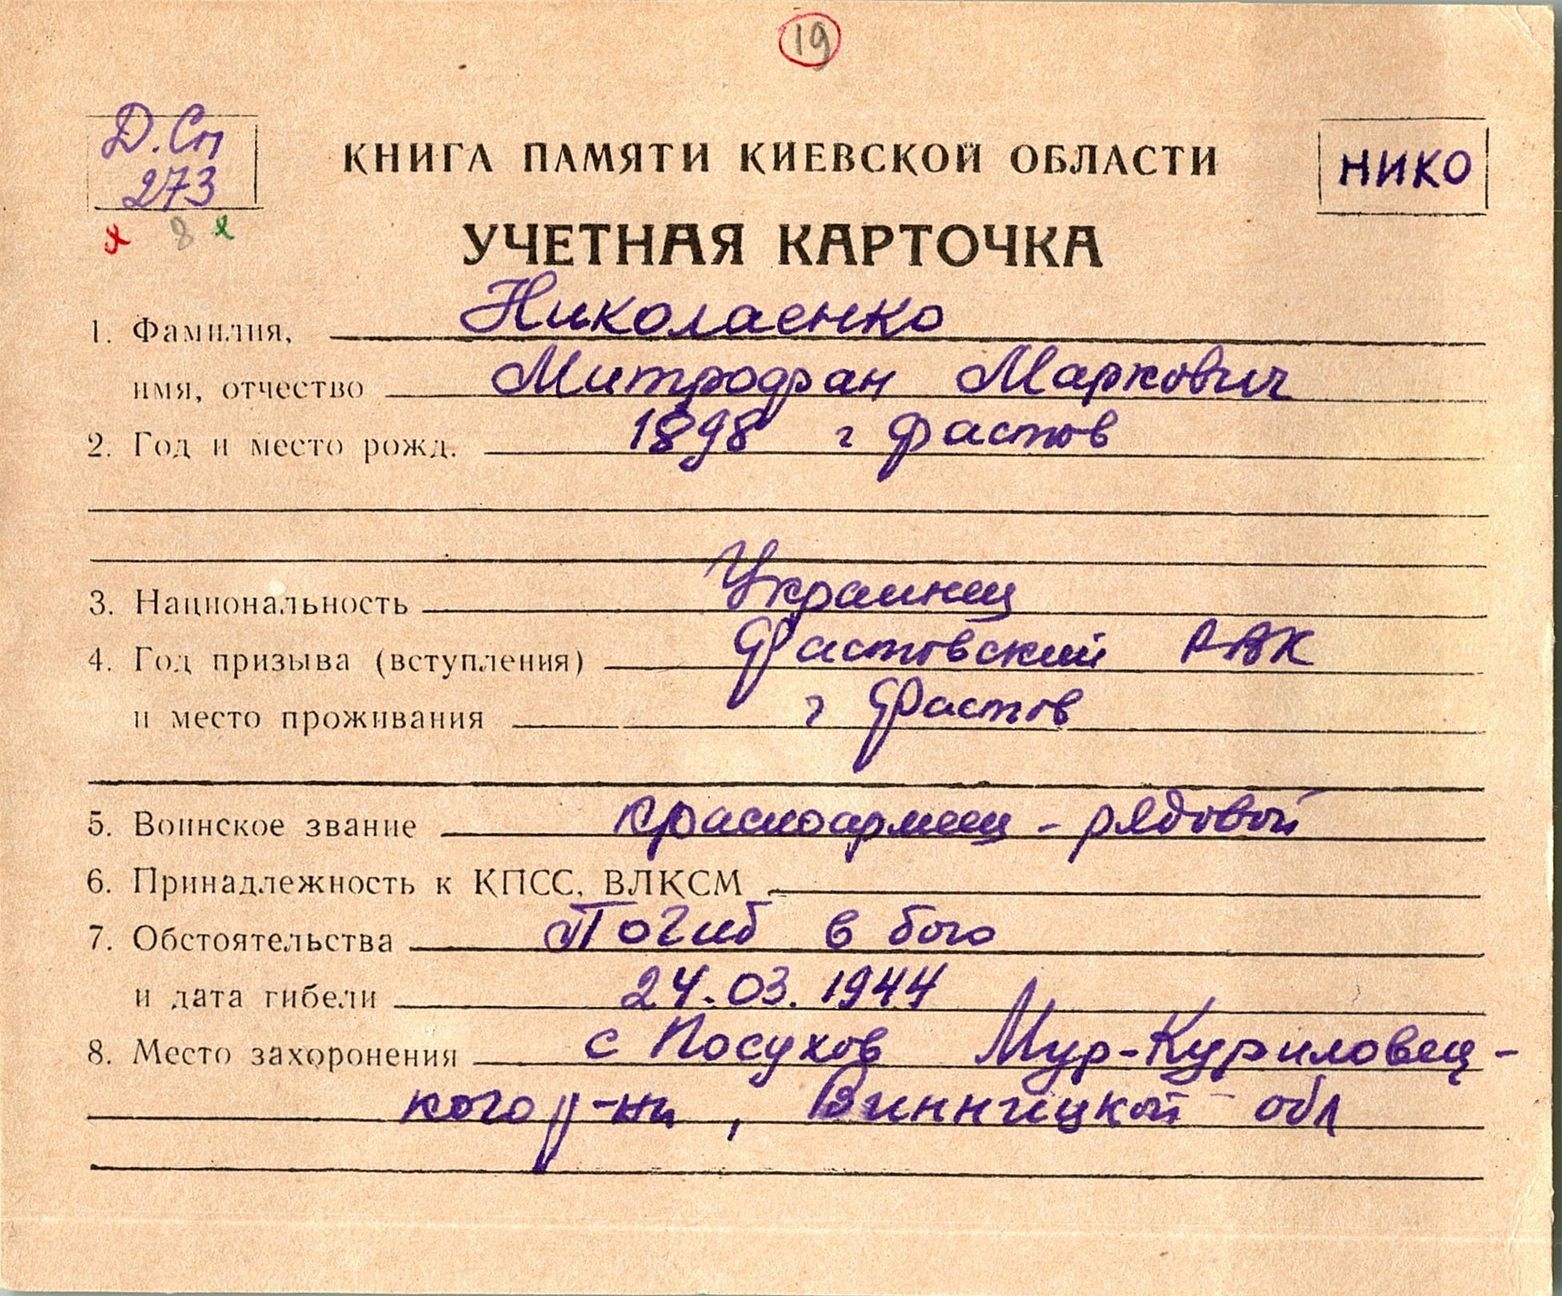 19
Д.Сп
273
КНИГА ПАМЯТИ КИЕВСКОЙ ОБЛАСТИ
НИКО
8
УЧЕТНАЯ КАРТОЧКА
1. Фамилия, Николаенко
имя, отчество Митрофан Маркович
2. Год и место рожд. 1898 г Фастов
3. Национальность Украинец
4. Год призыва (вступления) Фастовский РВК
и место проживания г Фастов
5. Воинское звание красноармеец - рядовой
6. Принадлежность к КПСС, ВЛКСМ
7. Обстоятельства Погиб в бою
и дата гибели 24.03.1944
8. Место захоронения с Посухов Мур-Куриловец-
кого р-на, Винницкой обл